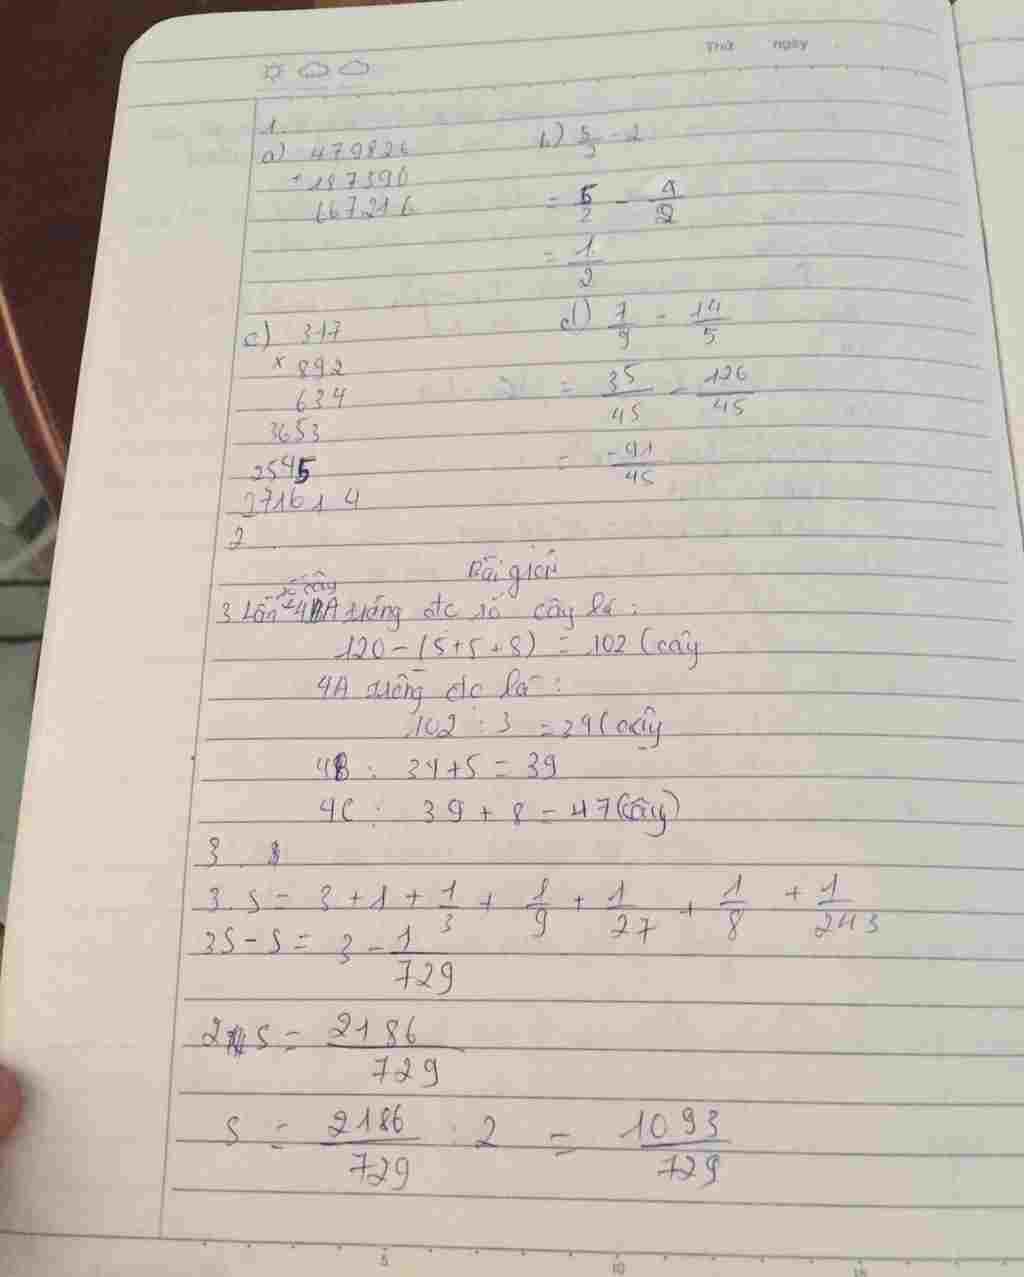 Thứ ngày
1.
a) 479826
+ 187390
667216
b) 5/2 - 2
= 5/2 - 4/2
= 1/2
c) 317
x 892
634
3653
2545
271614
d) 7/9 - 14/5
= 35/45 - 126/45
= -91/45
2
Bài giải
số cây
3 Lần 4A trồng đc số cây là:
120 - (5+5+8) = 102 (cây
4A trồng đc là:
102 : 3 = 34 (cây
4B : 34+5 = 39
4C : 39 + 8 = 47 (cây)
3.
3.S = 3 + 1 + 1/3 + 1/9 + 1/27 + 1/8 + 1/243
3S - S = 3 - 1/729
2 S = 2186/729
S = 2186/729 : 2 = 1093/729
5 10 15